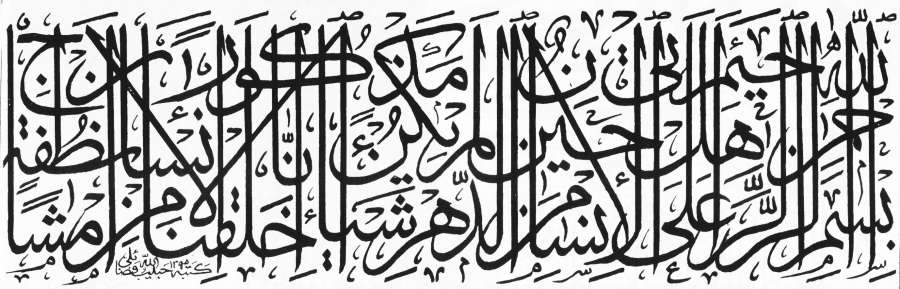 بِسْمِ اللهِ الرَّحْمٰنِ الرَّحِيمِ هَلْ أَتٰى عَلَى الْإِنْسَانِ حِينٌ مِنَ الدَّهْرِ لَمْ يَكُنْ شَيْئًا مَذْكُورًا إِنَّا خَلَقْنَا الْإِنْسَانَ مِنْ نُطْفَةٍ أَمْشَاجٍ
كتبه حبيب الله فضائلي